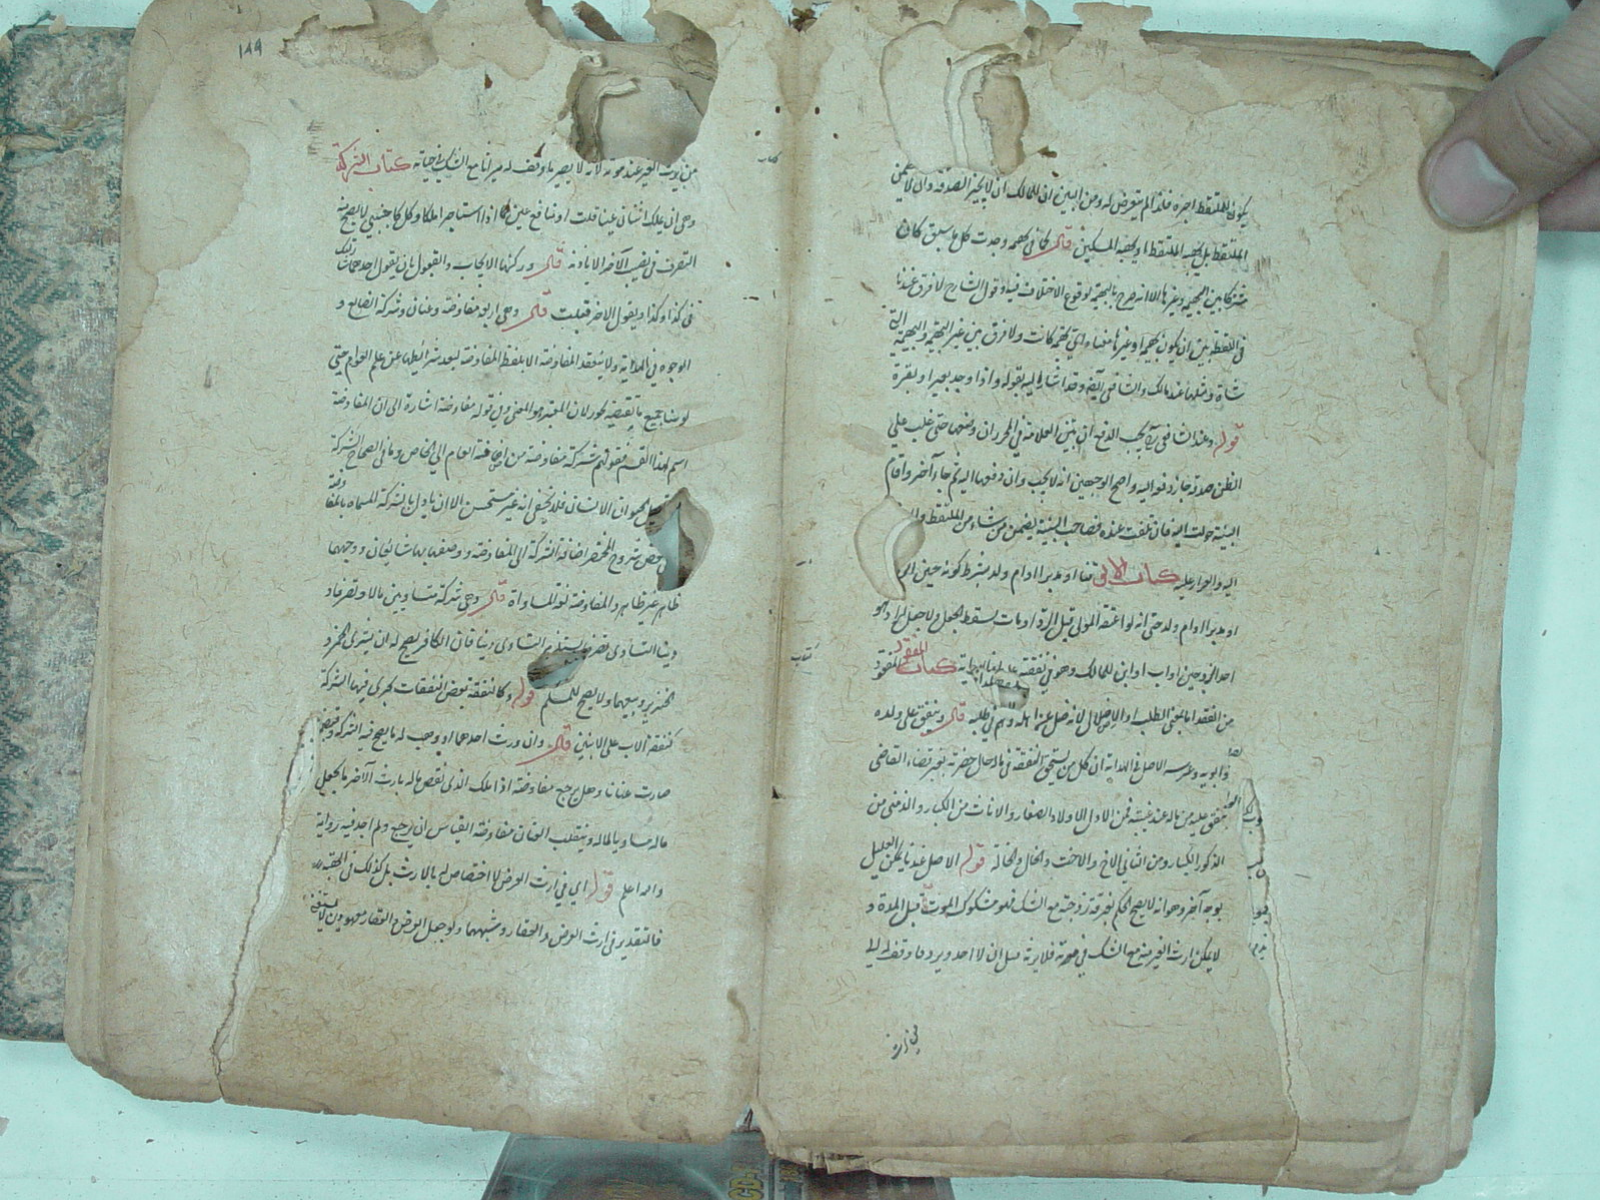 يكون للملتقط اجره فلذا لم يتعرض له ومن البين ان للمالك ان لا يجيز الصدقة وان لا يضمن
الملتقط بل كهبه الملتقط او كهبه المسكين قال كما فى بهيمة وجدت كل ما سبق كان
مشتركا بين البهيمة وغيرها الا انه صرح بالبهيمة لوقوع الاختلاف فيه وقول الشارح لا فرق عندنا
فى اللقطة بين ان يكون بهيمة او غيرها معناه اى بهيمة كانت ولا فرق بين غير البهيمة والبهيمة التى
شاة ومثلها عند مالك والشافعى ايضا وقد اشار اليه بقوله واذا وجد بعيرا وبقرة
قوله وعند الشافعى يجب الدفع ان بين العلامة فى المحرر ان وصفها حتى غلب على
الظن صدقه جاز دفعه اليه واصح الوجهين انه لا يجب وان دفعها اليه ثم جاء آخر واقام
البينة حولت اليه فان تلفت عنده فصاحب البينة يضمن من شاء من الملتقط
اليه والقرار عليه كتاب الابق قنا او مدبرا او ام ولد بشرط كونه حين
او مدبرا او ام ولد حتى انه لو اعتقه المولى قبل الرد او مات سقط الجعل ولا جعل لراد هو
احد الزوجين او اب او ابن للمالك وهو فى نفقته كتاب المفقود المفقود
من الفقد اما بمعنى الطلب او الاضلال لانه ضل عنه اهله وهم فى طلبه قال وينفق على ولده
وابويه وعرسه الاصل فى الهداية ان كل من يستحق النفقة فى ماله حال حضرته بغير قضاء القاضى
ينفق عليه من ماله عند غيبته فمن الاول الاولاد الصغار والاناث من الكبار والزمنى من
الذكور الكبار ومن الثانى الاخ والاخت والخال والخالة قوله الاصل عندنا يمكن التعليل
بوجه آخر وهو انه لا يصح الحكم بفرقة زوجته مع الشك فلو مشكوك الموت قبل المدة و
لا يمكن ارث الغير منه مع الشك فى موته فلا يرثه قبل ان لا احد ويرد ما وقف له الى
١٨٩
من يرث الغير عند موته لانه لا يصير ما وقف له ميراثا مع الشك فى حياته كتاب الشركة
وهى ان يملك اثنان عينا قلت او منافع عين كما اذا استاجرا ملكا وكل كاجنبى لا يصح منه
التصرف فى نصيب الآخر الا باذنه قال وركنها الايجاب والقبول بان يقول احدهما شاركتك
فى كذا وكذا ويقول الاخر قبلت قال وهى اربع مفاوضة وعنان وشركة الصنايع و
الوجوه فى الهداية ولا ينعقد المفاوضة الا بلفظ المفاوضة لبعد شرائطها عن علم العوام حتى
لو بينا جميع ما يقتضيه يجوز لان المعتبر هو المعنى وفى قوله مفاوضة اشارة الى ان المفاوضة
اسم لهذا القسم فقولهم شركة مفاوضة من اضافة العام الى الخاص وما فى الصحاح الشركة
كحيوان الانسان فلا يخفى انه غير مستحسن الا ان ياول بالشركة المسماة بالمفاوضة
شروح المختصر اضافة الشركة الى المفاوضة ووصفها بها شائعان ووجههما
ظاهر غير ظاهر والمفاوضة لغة المساواة قال وهى شركة متساويين مالا وتصرفا و
دينا التساوى تصرفا يستلزم التساوى دينا فان الكافر يصح له ان يشترى الخمر و
الخنزير ويبيعهما ولا يصح للمسلم قوله وكالنفقة بعض النفقات يجرى فيها الشركة
كنفقة الاب على الابنين قال وان ورث احدهما او وهب له ما يصح فيه الشركة وقبض
صارت عنانا وهل يرجع مفاوضة اذا ملك الذى نقص ماله بارث الآخر ما يجعل
ماله مساويا لماله وينقلب العنان مفاوضة القياس ان يرجع ولم اجد فيه رواية
والله اعلم قوله اى فى ارث العرض لا اختصاص له بالارث بل كذلك فى الهبة
فالتقدير فى ارث العرض والعقار وشبههما ولو جعل العرض والعقار